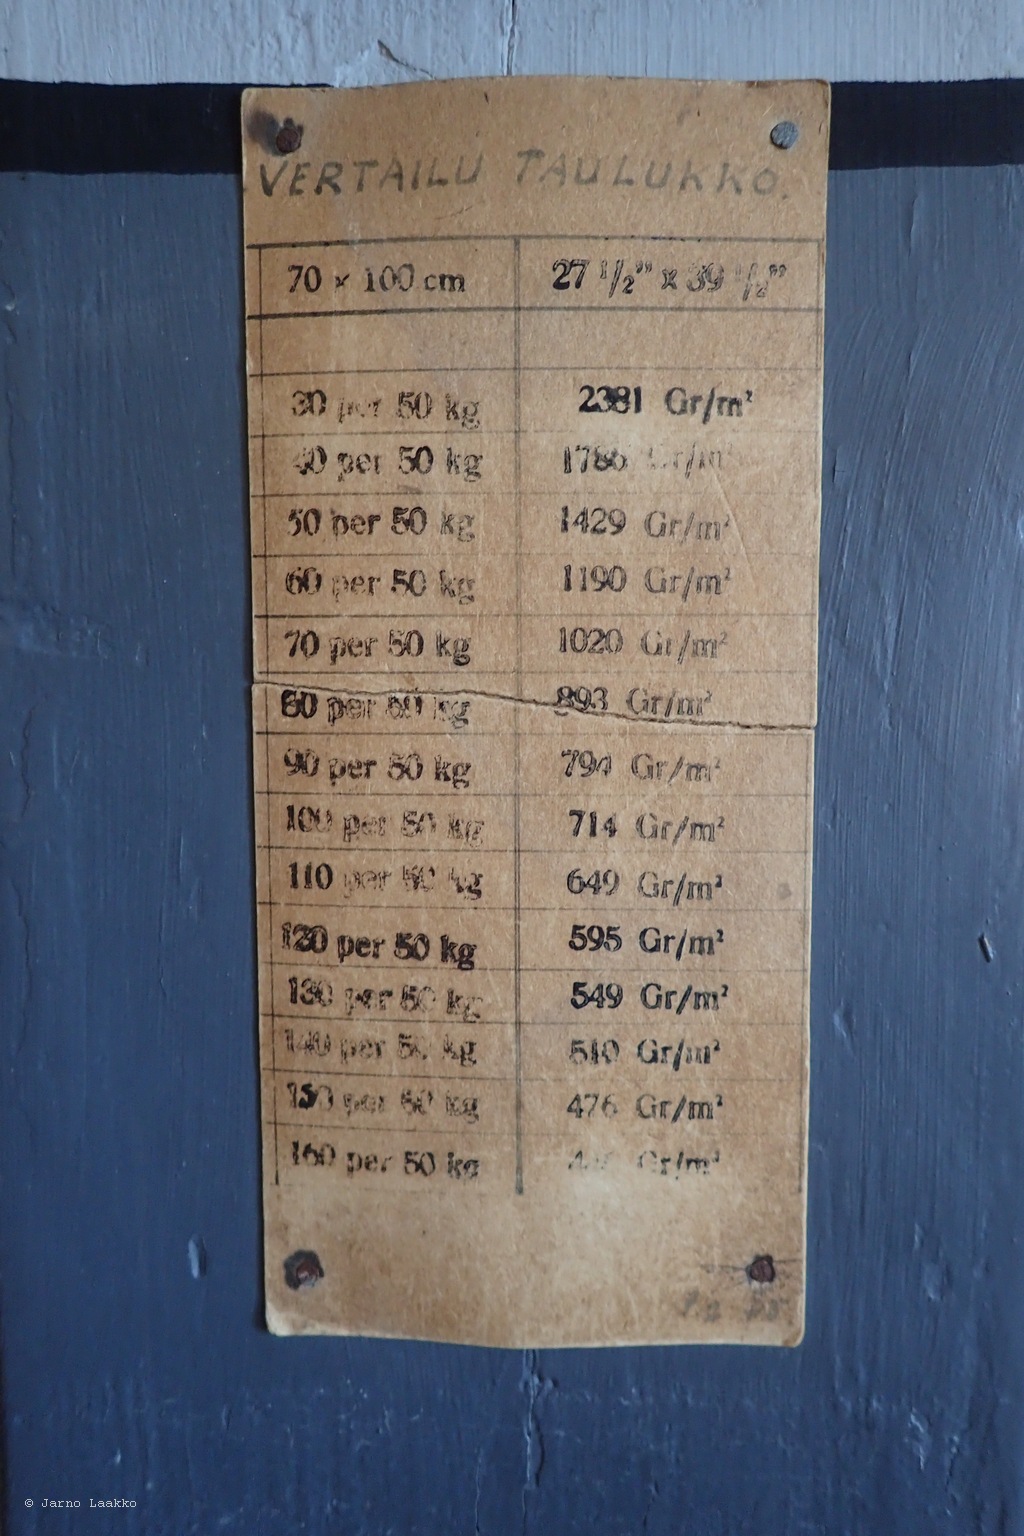 VERTAILU TAULUKKO.
70 x 100 cm 27 1/2" x 39 1/2"
30 per 50 kg 2381 Gr/m²
40 per 50 kg 1786 Gr/m²
50 per 50 kg 1429 Gr/m²
60 per 50 kg 1190 Gr/m²
70 per 50 kg 1020 Gr/m²
80 per 50 kg 893 Gr/m²
90 per 50 kg 794 Gr/m²
100 per 50 kg 714 Gr/m²
110 per 50 kg 649 Gr/m²
120 per 50 kg 595 Gr/m²
130 per 50 kg 549 Gr/m²
140 per 50 kg 510 Gr/m²
150 per 50 kg 476 Gr/m²
160 per 50 kg Gr/m²
© Jarno Laakko